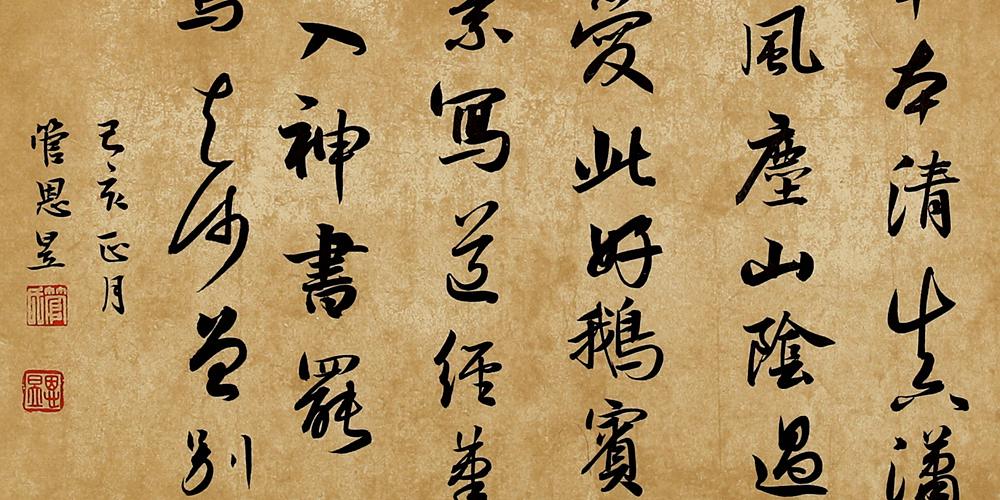 本清真瀟
風塵山陰過
愛此好鵝賓
素寫道經筆
入神書罷
去何曾別
己亥正月
管恩昱